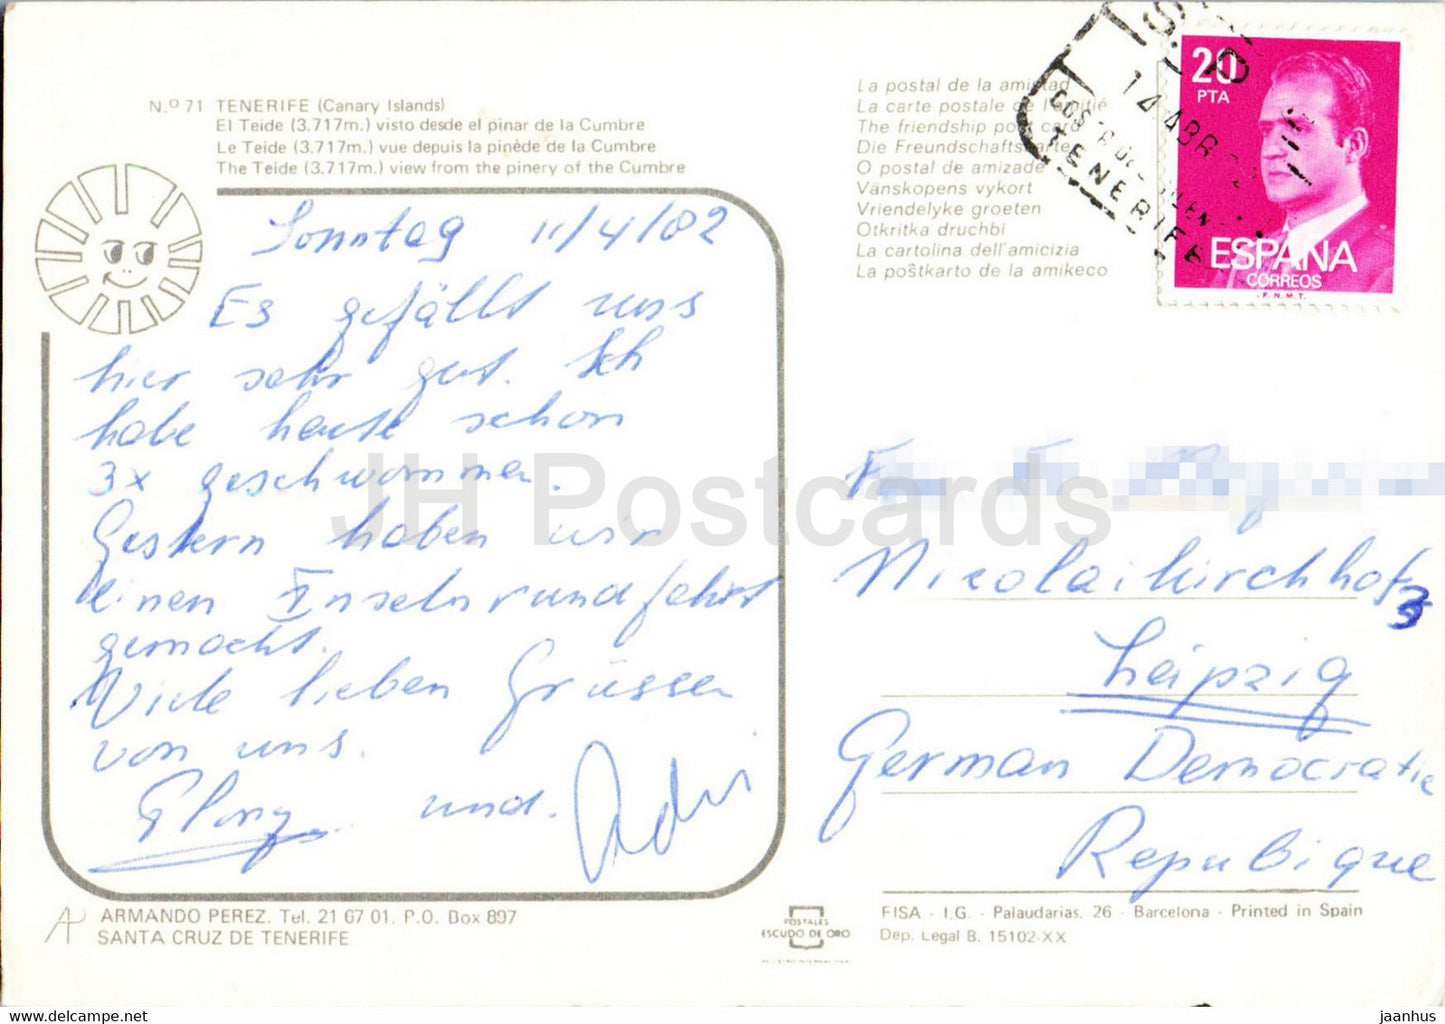 N.º 71 TENERIFE (Canary Islands)
El Teide (3.717m.) visto desde el pinar de la Cumbre
Le Teide (3.717m.) vue depuis la pinède de la Cumbre
The Teide (3.717m.) view from the pinery of the Cumbre
La postal de la amistad
La carte postale de l'amitié
The friendship post card
Die Freundschaftskarte
O postal de amizade
Vänskopens vykort
Vriendelyke groeten
Otkritka druchbi
La cartolina dell'amicizia
La poŝtkarto de la amikeco
14 ABR 82
TENERIFE
20
PTA
ESPAÑA
CORREOS
F.N.M.T.
Sonntag 11/4/82
Es gefällt uns
hier sehr gut. Ich
habe heute schon
3x geschwommen.
Gestern haben wir
einen Inselnrundfahrt
gemacht.
Viele lieben Grüssen
von uns.
und
Nicolaikirchhof 3
Leipzig
German Democratic
Republique
JH Postcards
ARMANDO PEREZ. Tel. 21 67 01. P.O. Box 897
SANTA CRUZ DE TENERIFE
POSTALES
ESCUDO DE ORO
FISA - I.G. - Palaudarias, 26 - Barcelona - Printed in Spain
Dep. Legal B. 15102-XX
delcampe.net
jaanhus